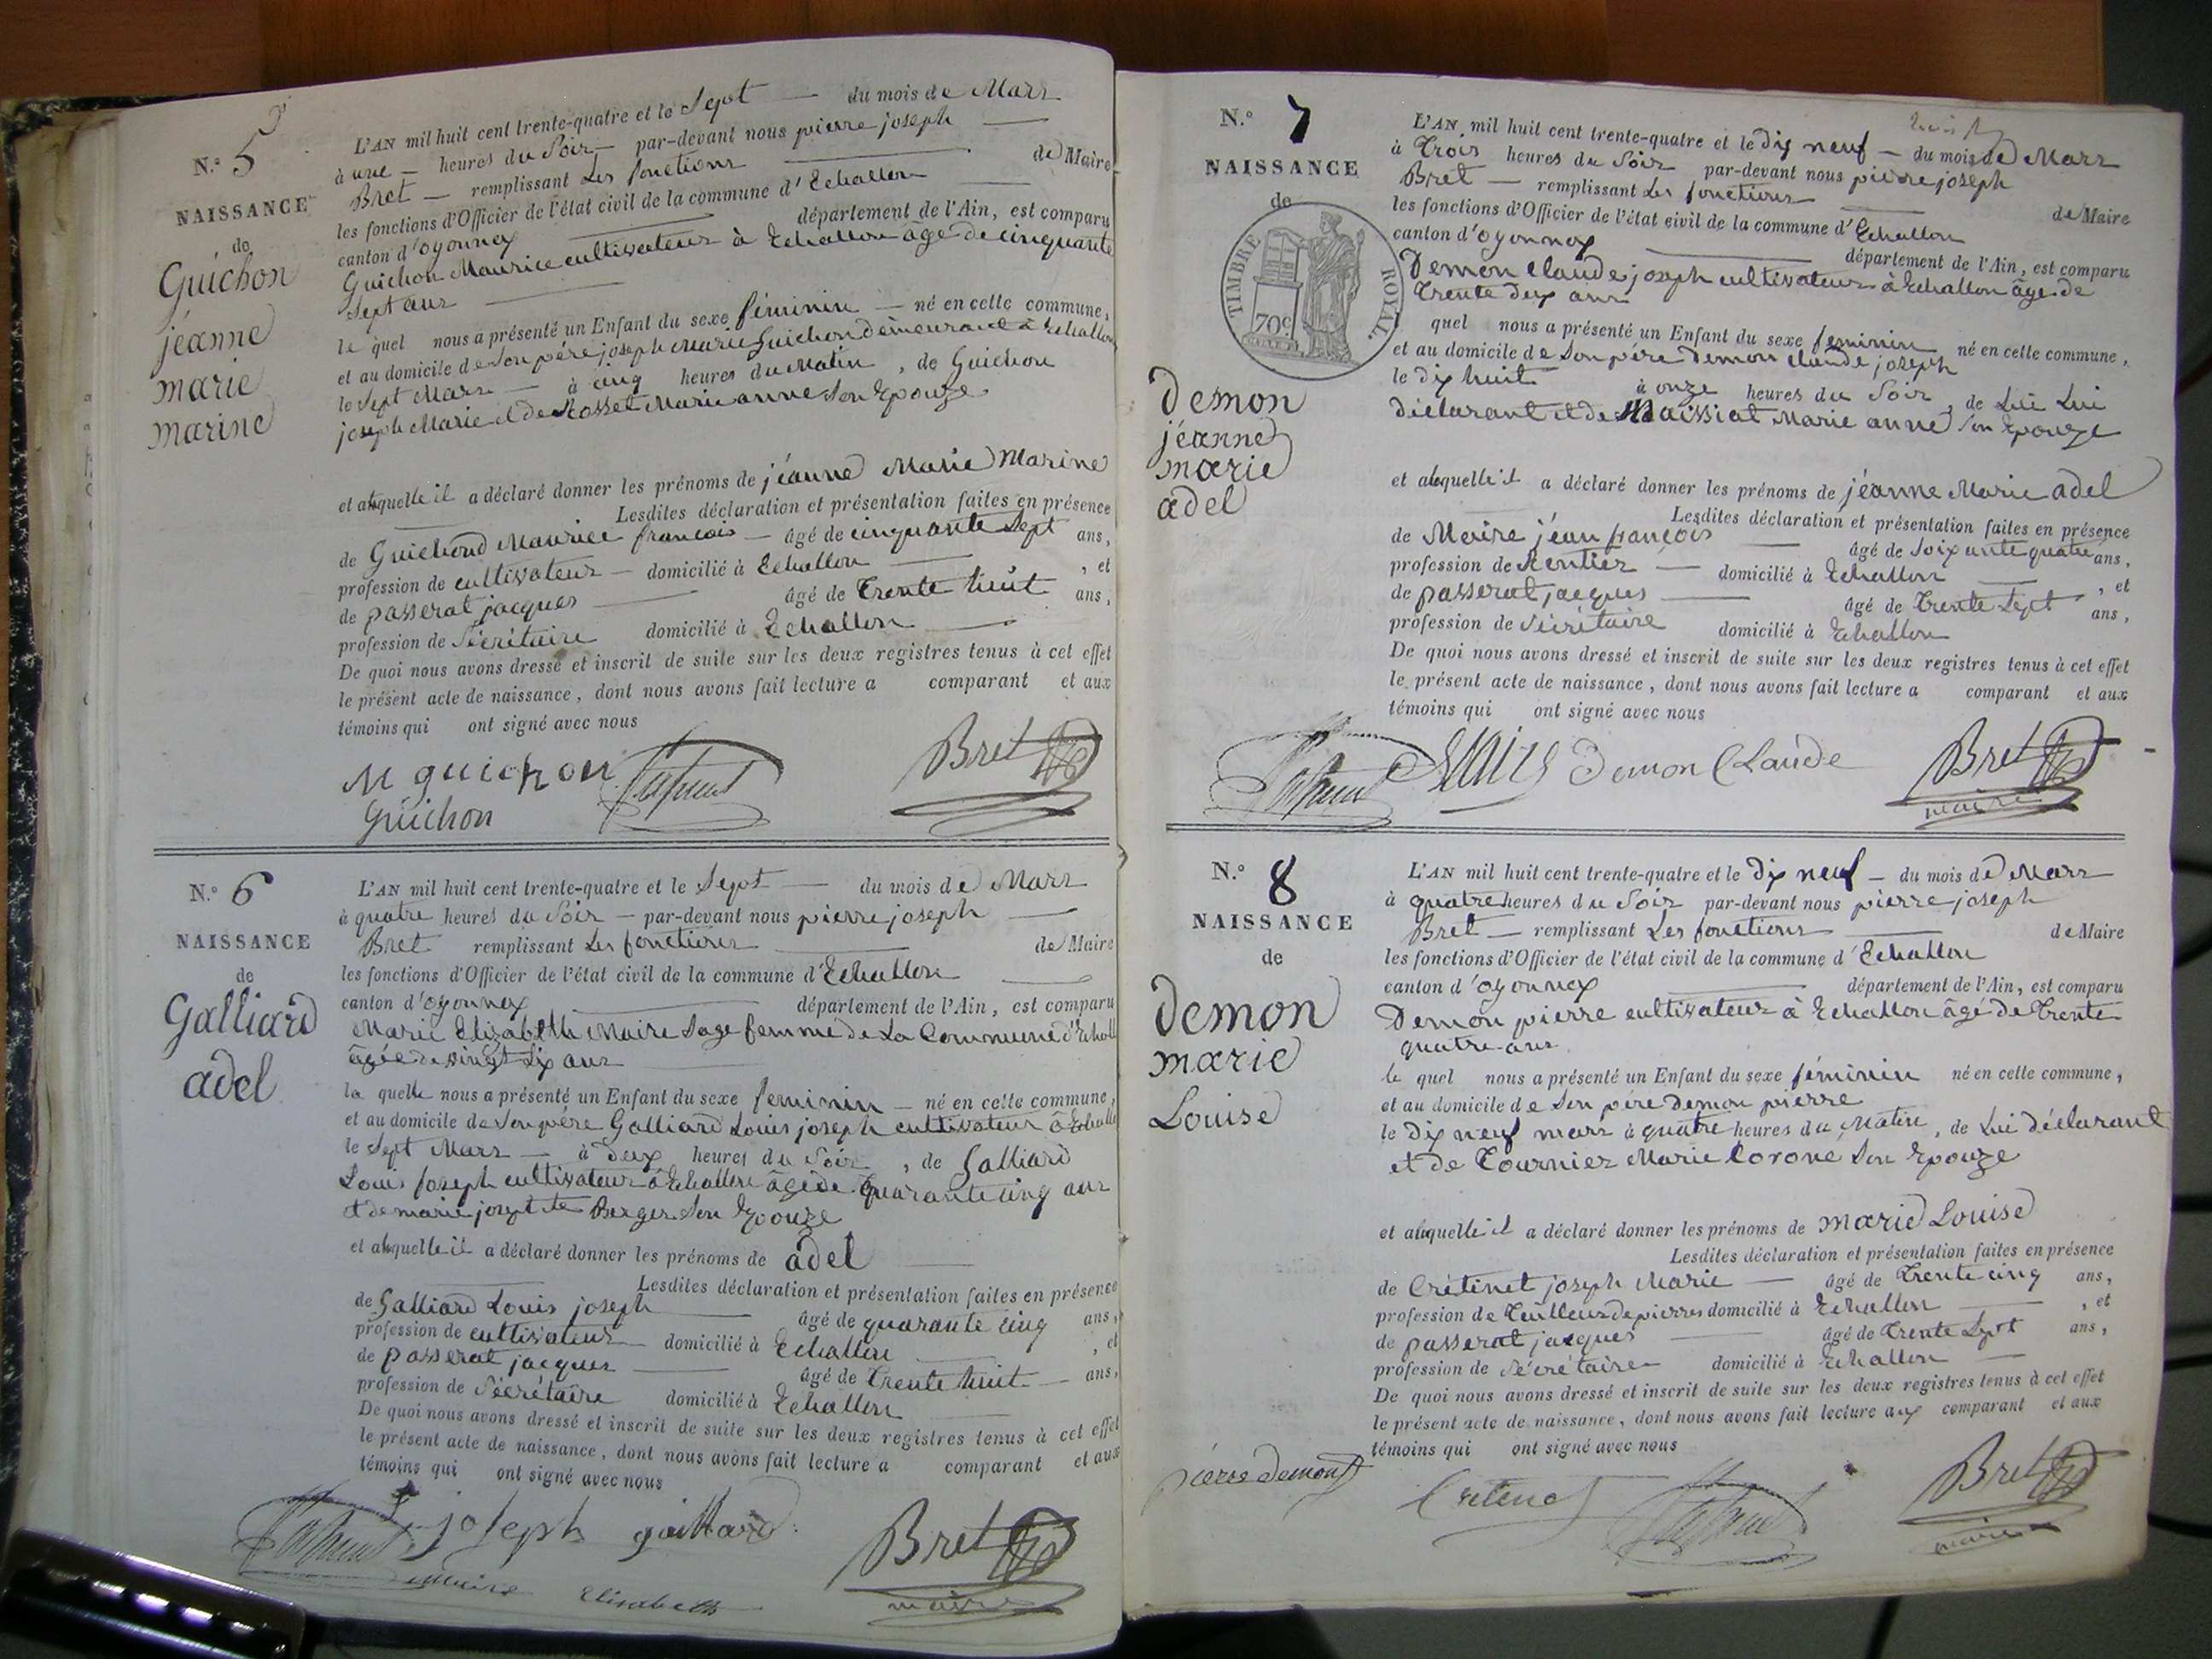 N.° 5
NAISSANCE
de
Guichon
jéanne
marie
marine
L'AN mil huit cent trente-quatre et le Sept — du mois de Mars
à une — heures du Soir — par-devant nous pierre joseph —
Bret — remplissant Les fonctions — de Maire
les fonctions d'Officier de l'état civil de la commune d'Echallon —
canton d'oyonnax — département de l'Ain, est comparu
Guichon Maurice cultivateur à Echallon âgé de cinquante
Sept ans —
le quel nous a présenté un Enfant du sexe féminin — né en cette commune,
et au domicile de Son père joseph Marie Guichon demeurant à Echallon
le Sept Mars — à cinq heures du Matin, de Guichon
joseph Marie et de Rosset Marie anne Son Epouze
et a laquelle il a déclaré donner les prénoms de jéanne Marie Marine
Lesdites déclaration et présentation faites en présence
de Guichond Maurice francois — âgé de cinquante Sept ans,
profession de cultivateur — domicilié à Echallon — , et
de passerat jacques — âgé de Trente huit ans,
profession de Sécrétaire domicilié à Echallon —
De quoi nous avons dressé et inscrit de suite sur les deux registres tenus à cet effet
le présent acte de naissance, dont nous avons fait lecture a comparant et aux
témoins qui ont signé avec nous
M guichon Bret
Guichon
N.° 6
NAISSANCE
de
Galliard
adel
L'AN mil huit cent trente-quatre et le Sept — du mois de Mars
à quatre heures du Soir — par-devant nous pierre joseph —
Bret remplissant Les fonctions — de Maire
les fonctions d'Officier de l'état civil de la commune d'Echallon —
canton d'oyonnax — département de l'Ain, est comparu
Marie Elizabeth Maire Sage femme de La Commune d'Echall
âgée de vingt Six ans —
la quelle nous a présenté un Enfant du sexe feminin — né en cette commune,
et au domicile de Son père Galliard Louis joseph cultivateur à Echallo
le Sept Mars — à deux heures du Soir, de Galliard
Louis joseph cultivateur à Echallon âgé de quarante cinq ans
et de marie josephte Berger Son Epouze
et a laquelle il a déclaré donner les prénoms de adel —
Lesdites déclaration et présentation faites en présence
de Galliard Louis joseph — âgé de quarante cinq ans,
profession de cultivateur — domicilié à Echallon — , et
de passerat jacques — âgé de Trente huit — ans,
profession de Sécrétaire domicilié à Echallon —
De quoi nous avons dressé et inscrit de suite sur les deux registres tenus à cet effet
le présent acte de naissance, dont nous avons fait lecture a comparant et aux
témoins qui ont signé avec nous
joseph gaillard Bret
maire Elisabeth maire
N.° 7
NAISSANCE
de
TIMBRE ROYAL.
70c
demon
jéanne
marie
adel
L'AN mil huit cent trente-quatre et le dix neuf — du mois de Mars
à Trois heures du Soir par-devant nous pierre joseph
Bret — remplissant Les fonctions — de Maire
les fonctions d'Officier de l'état civil de la commune d'Echallon
canton d'oyonnax — département de l'Ain, est comparu
Demon claude joseph cultivateur à Echallon âgé de
Trente deux ans
quel nous a présenté un Enfant du sexe feminin né en cette commune,
et au domicile de Son père Demon claude joseph
le dix huit à onze heures du Soir, de Lui Lui
déclarant et de Maissiat Marie anne Son Epouze
et a laquelle il a déclaré donner les prénoms de jéanne Marie adel
Lesdites déclaration et présentation faites en présence
de Maire jéan françois — âgé de Soixante quatre ans,
profession de Rentier — domicilié à Echallon — , et
de passerat jacques — âgé de Trente Sept ans,
profession de Sécrétaire domicilié à Echallon
De quoi nous avons dressé et inscrit de suite sur les deux registres tenus à cet effet
le présent acte de naissance, dont nous avons fait lecture a comparant et aux
témoins qui ont signé avec nous
Maire Demon Claude Bret
maire
N.° 8
NAISSANCE
de
demon
marie
Louise
L'AN mil huit cent trente-quatre et le dix neuf — du mois de Mars
à quatre heures du Soir par-devant nous pierre joseph
Bret — remplissant Les fonctions — de Maire
les fonctions d'Officier de l'état civil de la commune d'Echallon
canton d'oyonnax — département de l'Ain, est comparu
Demon pierre cultivateur à Echallon âgé de Trente
quatre ans
le quel nous a présenté un Enfant du sexe féminin né en cette commune,
et au domicile de Son père demon pierre
le dix neuf mars à quatre heures du Matin, de Lui déclarant
et de Tournier Marie Corone Son Epouze
et a laquelle il a déclaré donner les prénoms de marie Louise
Lesdites déclaration et présentation faites en présence
de Crétinet joseph Marie — âgé de Trente cinq ans,
profession de Tailleur de pierres domicilié à Echallon — , et
de passerat jacques — âgé de Trente Sept ans,
profession de Sécrétaire domicilié à Echallon —
De quoi nous avons dressé et inscrit de suite sur les deux registres tenus à cet effet
le présent acte de naissance, dont nous avons fait lecture aux comparant et aux
témoins qui ont signé avec nous
pierre demont Bret
maire